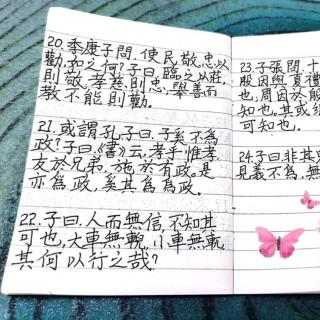 20. 季康子問．使民敬、忠以
勸，如之何？子曰，臨之以莊，
則敬，孝慈，則忠，舉善而
教不能，則勸。
21. 或謂孔子曰．子奚不為
政？子曰．《書》云，孝乎惟孝
友於兄弟，施於有政。是
亦為政，奚其為為政。
22. 子曰．人而無信，不知其
可也，大車無輗，小車無軏
其何以行之哉？
23. 子張問．十
殷因
也，周因於殷
知也。其或
可知也。
24. 子曰．非其
見義不為，無